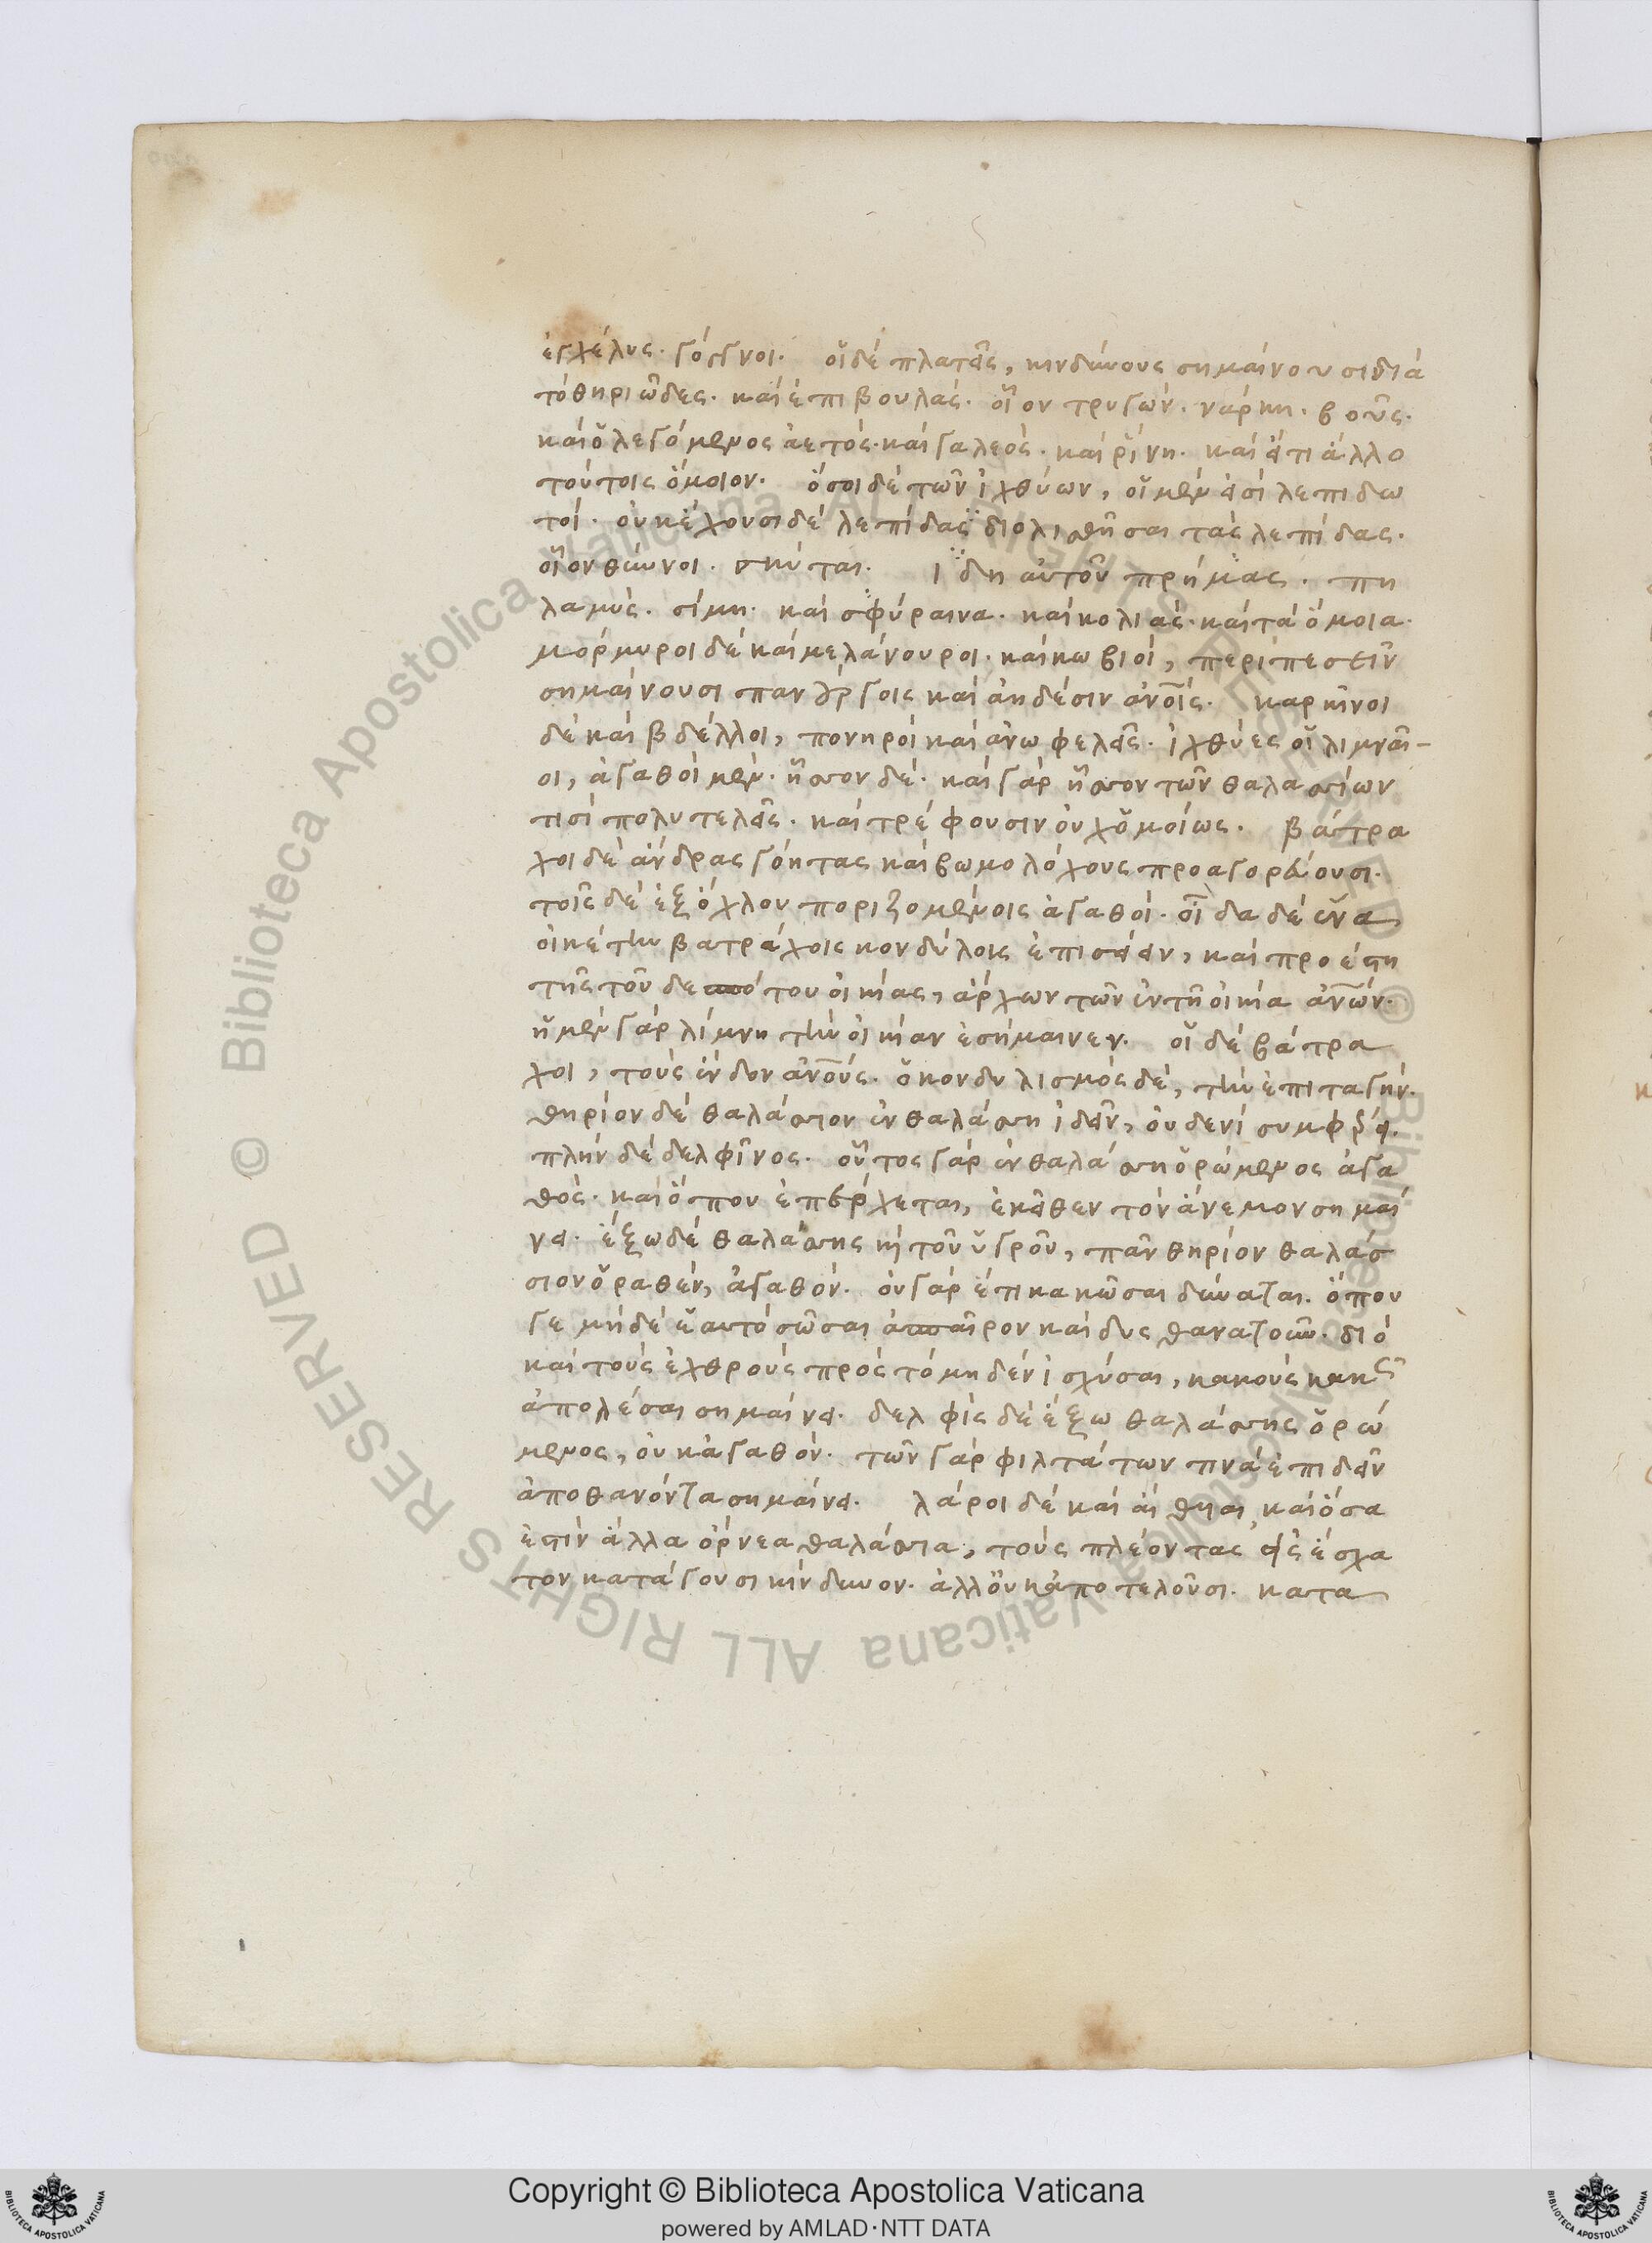 ἐγχέλυς. γόγγροι. οἱ δὲ πλατεῖς, κινδύνους σημαίνουσι διὰ
τὸ θηριῶδες. καὶ ἐπιβουλάς. οἷον τρυγών. νάρκη. βοῦς.
καὶ ὁ λεγόμενος ἀετός. καὶ γαλεός. καὶ ῥίνη. καὶ εἴ τι ἄλλο
τούτοις ὅμοιον. ὅσοι δὲ τῶν ἰχθύων, οἱ μέν εἰσι λεπιδω
τοί. οὐκ ἔχουσι δὲ λεπίδας διολισθῆσαι τὰς λεπίδας.
οἷον θύννοι. ἴδη αὐτοῦ πρήμας. πη
λαμύς. σίμη. καὶ σφύραινα. καὶ κολιάς. καὶ τὰ ὅμοια.
μόρμυροι δὲ καὶ μελάνουροι. καὶ κωβιοί, περιπεσεῖν
σημαίνουσι πανούργοις καὶ ἀηδέσιν ἀνοις. καρκῖνοι
δὲ καὶ βδέλλοι, πονηροὶ καὶ ἀνωφελεῖς. ἰχθύες οἱ λιμναῖ-
οι, ἀγαθοὶ μέν. ἧσσον δέ. καὶ γὰρ ἧσσον τῶν θαλασσίων
εἰσὶ πολυτελεῖς. καὶ τρέφουσιν οὐχ ὁμοίως. βάτρα
χοι δὲ ἄνδρας γόητας καὶ βωμολόχους προαγορεύουσι.
τοῖς δὲ ἐξ ὄχλου ποριζομένοις ἀγαθοί. οἶδα δὲ ἕνα
οἰκέτην βατράχοις κονδύλοις ἐπισείειν, καὶ προέστη
τῆς τοῦ δεσπότου οἰκίας, ἄρχων τῶν ἐν τῇ οἰκία ἀνων.
ἡ μὲν γὰρ λίμνη τὴν οἰκίαν ἐσήμαινεν. οἱ δὲ βάτρα
χοι, τοὺς ἔνδον ἀνους. ὁ κονδυλισμὸς δέ, τὴν ἐπιταγήν.
θηρίον δὲ θαλάσσιον ἐν θαλάσση ἰδεῖν, οὐδενὶ συμφέρει.
πλὴν δὲ δελφῖνος. οὗτος γὰρ ἐν θαλάσση ὁρώμενος ἀγα
θός. καὶ ὅπου ἐπέρχεται, ἐκεῖθεν τὸν ἄνεμον σημαί
νει. ἔξω δὲ θαλάσσης καὶ τοῦ ὑγροῦ, πᾶν θηρίον θαλάσ
σιον ὁραθέν, ἀγαθόν. οὐ γὰρ ἔτι κακῶσαι δύναται. ὅπου
γε μὴ δὲ ἑαυτὸ σῶσαι ἀσπαῖρον καὶ δυςθανατοῦν. διὸ
καὶ τοὺς ἐχθροὺς πρὸς τὸ μηδὲν ἰσχύσαι, κακοὺς κακῶς
ἀπολέσαι σημαίνει. δελφὶς δὲ ἔξω θαλάσσης ὁρώ
μενος, οὐκ ἀγαθόν. τῶν γὰρ φιλτάτων τινὰ ἐπιδεῖν
ἀποθανόντα σημαίνει. λάροι δὲ καὶ αἴθυιαι, καὶ ὅσα
ἐστὶν ἄλλα ὄρνεα θαλάσσια, τοὺς πλέοντας εἰς ἔσχα
τον κατάγουσι κίνδυνον. ἀλλ᾽ οὐκ ἀποτελοῦσι. κατα